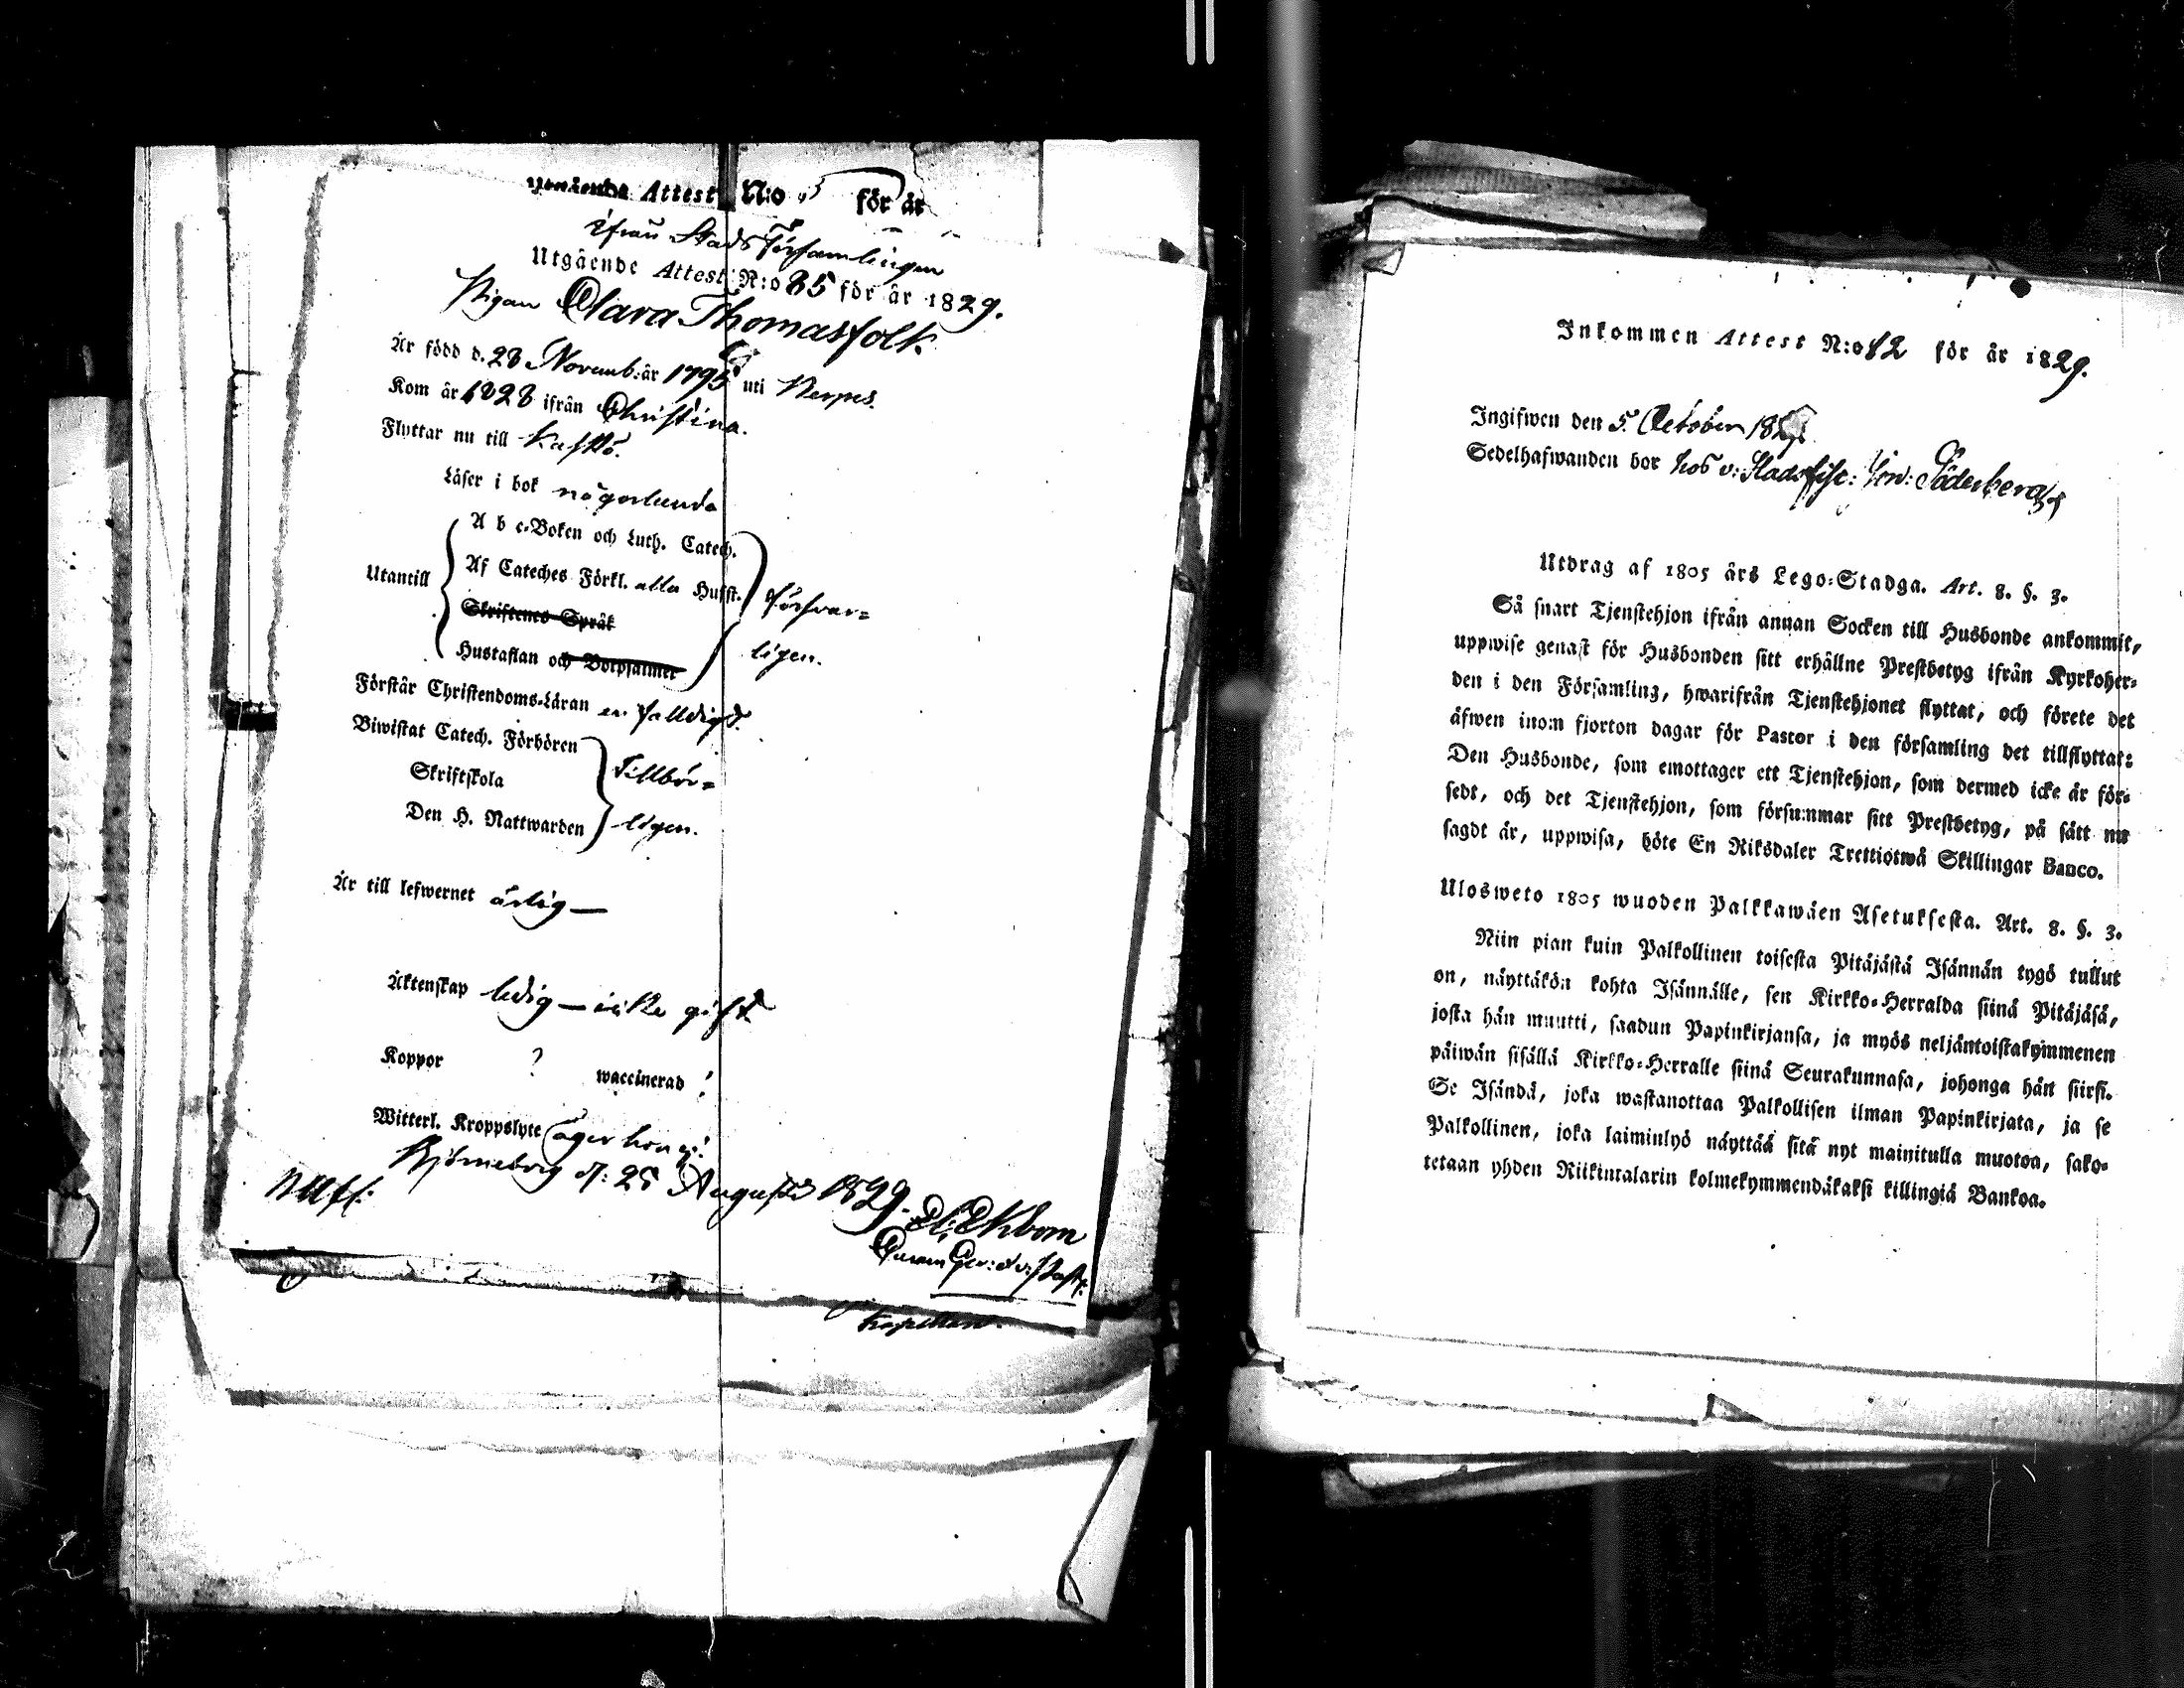 Attest N:o för år
ifrån Stads Församlingen
Utgående Attest N:o 85 för år 1829.
Pigan Clara Thomasfolk.
Är född d. 28 Novemb: år 1795 uti Nerpes.
Kom år 1828 ifrån Christina.
Flyttar nu till Kaskö.
Läser i bok någorlunda
A b c-Boken och Luth. Catech.
Utantill Af Cateches Förkl. alla Huffst. försvar-
Skriftenes Språk
Hustaflan och Botpsalmer ligen.
Förstår Christendoms-Läran enfalldigt.
Biwistat Catech. Förhören Tillbör-
Skriftskola
Den H. Nattwarden ligen.
Är till lefwernet ärlig —
Äktenskap ledig — icke gift
Koppor ? waccinerad !
Witterl. Kroppslyte äger hon ej!
Björneborg d: 25 Augusti 1829.
Ekbom
Kapellan.
Inkommen Attest N:o 82 för år 1829.
Ingifwen den 5. October 1829.
Sedelhafwanden bor hos v: Stadsfisc: Söderberg
Utdrag af 1805 års Lego-Stadga. Art. 8. §. 3.
Så snart Tjenstehjon ifrån annan Socken till Husbonde ankommit,
uppwise genast för Husbonden sitt erhållne Prestbetyg ifrån Kyrkoher-
den i den Församling, hwarifrån Tjenstehjonet flyttat, och förete det
äfwen inom fjorton dagar för Pastor i den församling det tillflyttat:
Den Husbonde, som emottager ett Tjenstehjon, som dermed icke är för-
sedt, och det Tjenstehjon, som försummar sitt Prestbetyg, på sätt nu
sagdt är, uppwisa, böte En Riksdaler Trettiotwå Skillingar Banco.
Ulosweto 1805 wuoden Palkkawäen Asetuksesta. Art. 8. §. 3.
Niin pian kuin Palkollinen toisesta Pitäjästä Isännän tygö tullut
on, näyttäkön kohta Isännälle, sen Kirkko-Herralda siinä Pitäjäsä,
josta hän muutti, saadun Papinkirjansa, ja myös neljäntoistakymmenen
päiwän sisällä Kirkko-Herralle siinä Seurakunnasa, johonga hän siirsi.
Se Isändä, joka wastanottaa Palkollisen ilman Papinkirjata, ja se
Palkollinen, joka laiminlyö näyttää sitä nyt mainitulla muotoa, sako-
tetaan yhden Riikintalarin kolmekymmendäkaksi killingiä Bankoa.